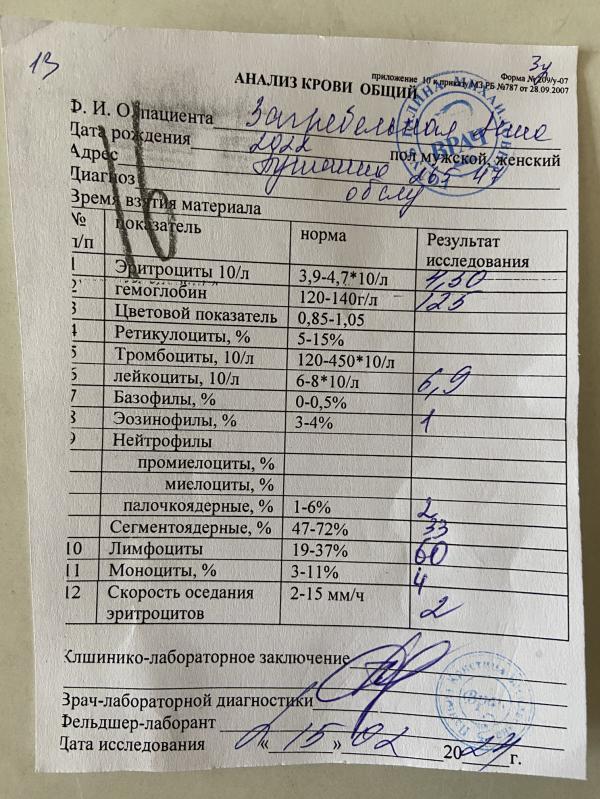 13
Зу
приложение 10 к приказу МЗ РБ №787 от 28.09.2007
Форма №209/у-07
АНАЛИЗ КРОВИ ОБЩИЙ
ВРАЧ
Ф. И. О. пациента Загребельная
Дата рождения 2022 пол мужской, женский
Адрес 265 47
Диагноз обслу
Время взятия материала
№ п/п показатель норма Результат исследования
1 Эритроциты 10/л 3,9-4,7*10/л 4,30
2 гемоглобин 120-140г/л 125
3 Цветовой показатель 0,85-1,05
4 Ретикулоциты, % 5-15%
5 Тромбоциты, 10/л 120-450*10/л
6 лейкоциты, 10/л 6-8*10/л 6,9
7 Базофилы, % 0-0,5%
8 Эозинофилы, % 3-4% 1
9 Нейтрофилы
промиелоциты, %
миелоциты, %
палочкоядерные, % 1-6% 2
Сегментоядерные, % 47-72% 33
10 Лимфоциты 19-37% 60
11 Моноциты, % 3-11% 4
12 Скорость оседания эритроцитов 2-15 мм/ч 2
Клшинико-лабораторное заключение
Врач-лабораторной диагностики
Фельдшер-лаборант
Дата исследования « 15 » 02 2024 г.